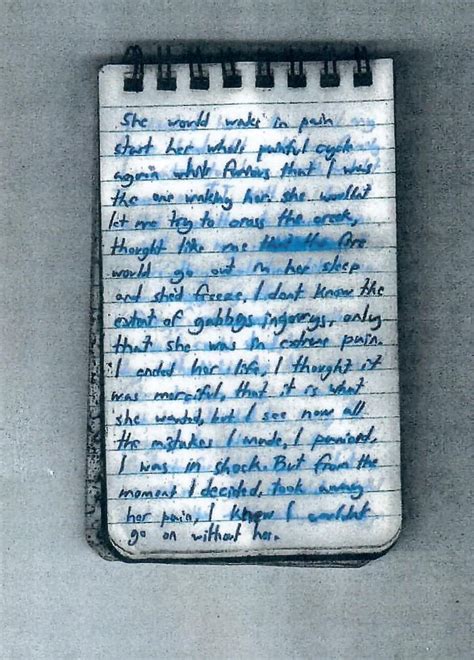 She would wake in pain
start her whole painful cycle
again while furious that I was
the one waking her. she wouldnt
let me try to cross the creek,
thought like me that the fire
would go out in her sleep
and shed freeze. I dont know the
extent of gabbys ingourys, only
that she was in extreme pain.
I ended her life, I thought it
was merciful, that it is what
she wanted, but I see now all
the mistakes I made. I panicked,
I was in shock. But from the
moment I decided, took away
her pain, I knew I wouldnt
go on without her.